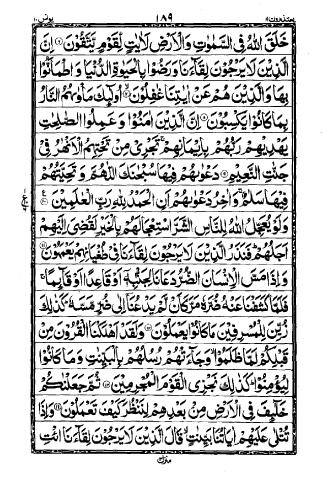 یونس ۱۰ ۱۸۹ یعتذرون ۱۱
خَلَقَ اللّٰهُ فِی السَّمٰوٰتِ وَالْاَرْضِ لَاٰیٰتٍ لِّقَوْمٍ یَّتَّقُوْنَ ۝ اِنَّ
الَّذِیْنَ لَا یَرْجُوْنَ لِقَآءَنَا وَرَضُوْا بِالْحَیٰوةِ الدُّنْیَا وَاطْمَاَنُّوْا
بِهَا وَالَّذِیْنَ هُمْ عَنْ اٰیٰتِنَا غٰفِلُوْنَ ۝ اُولٰٓئِكَ مَاْوٰىهُمُ النَّارُ
بِمَا كَانُوْا یَكْسِبُوْنَ ۝ اِنَّ الَّذِیْنَ اٰمَنُوْا وَعَمِلُوا الصّٰلِحٰتِ
یَهْدِیْهِمْ رَبُّهُمْ بِاِیْمَانِهِمْ ۚ تَجْرِیْ مِنْ تَحْتِهِمُ الْاَنْهٰرُ فِیْ
جَنّٰتِ النَّعِیْمِ ۝ دَعْوٰىهُمْ فِیْهَا سُبْحٰنَكَ اللّٰهُمَّ وَتَحِیَّتُهُمْ
فِیْهَا سَلٰمٌ ۚ وَاٰخِرُ دَعْوٰىهُمْ اَنِ الْحَمْدُ لِلّٰهِ رَبِّ الْعٰلَمِیْنَ ۝
وَلَوْ یُعَجِّلُ اللّٰهُ لِلنَّاسِ الشَّرَّ اسْتِعْجَالَهُمْ بِالْخَیْرِ لَقُضِیَ اِلَیْهِمْ
اَجَلُهُمْ ؕ فَنَذَرُ الَّذِیْنَ لَا یَرْجُوْنَ لِقَآءَنَا فِیْ طُغْیَانِهِمْ یَعْمَهُوْنَ ۝
وَاِذَا مَسَّ الْاِنْسَانَ الضُّرُّ دَعَانَا لِجَنْۢبِهٖۤ اَوْ قَاعِدًا اَوْ قَآئِمًا ۚ
فَلَمَّا كَشَفْنَا عَنْهُ ضُرَّهٗ مَرَّ كَاَنْ لَّمْ یَدْعُنَاۤ اِلٰى ضُرٍّ مَّسَّهٗ ؕ كَذٰلِكَ
زُیِّنَ لِلْمُسْرِفِیْنَ مَا كَانُوْا یَعْمَلُوْنَ ۝ وَلَقَدْ اَهْلَكْنَا الْقُرُوْنَ مِنْ
قَبْلِكُمْ لَمَّا ظَلَمُوْا ۙ وَجَآءَتْهُمْ رُسُلُهُمْ بِالْبَیِّنٰتِ وَمَا كَانُوْا
لِیُؤْمِنُوْا ؕ كَذٰلِكَ نَجْزِی الْقَوْمَ الْمُجْرِمِیْنَ ۝ ثُمَّ جَعَلْنٰكُمْ
خَلٰٓئِفَ فِی الْاَرْضِ مِنْۢ بَعْدِهِمْ لِنَنْظُرَ كَیْفَ تَعْمَلُوْنَ ۝ وَاِذَا
تُتْلٰى عَلَیْهِمْ اٰیَاتُنَا بَیِّنٰتٍ ۙ قَالَ الَّذِیْنَ لَا یَرْجُوْنَ لِقَآءَنَا ائْتِ
منزل ۳